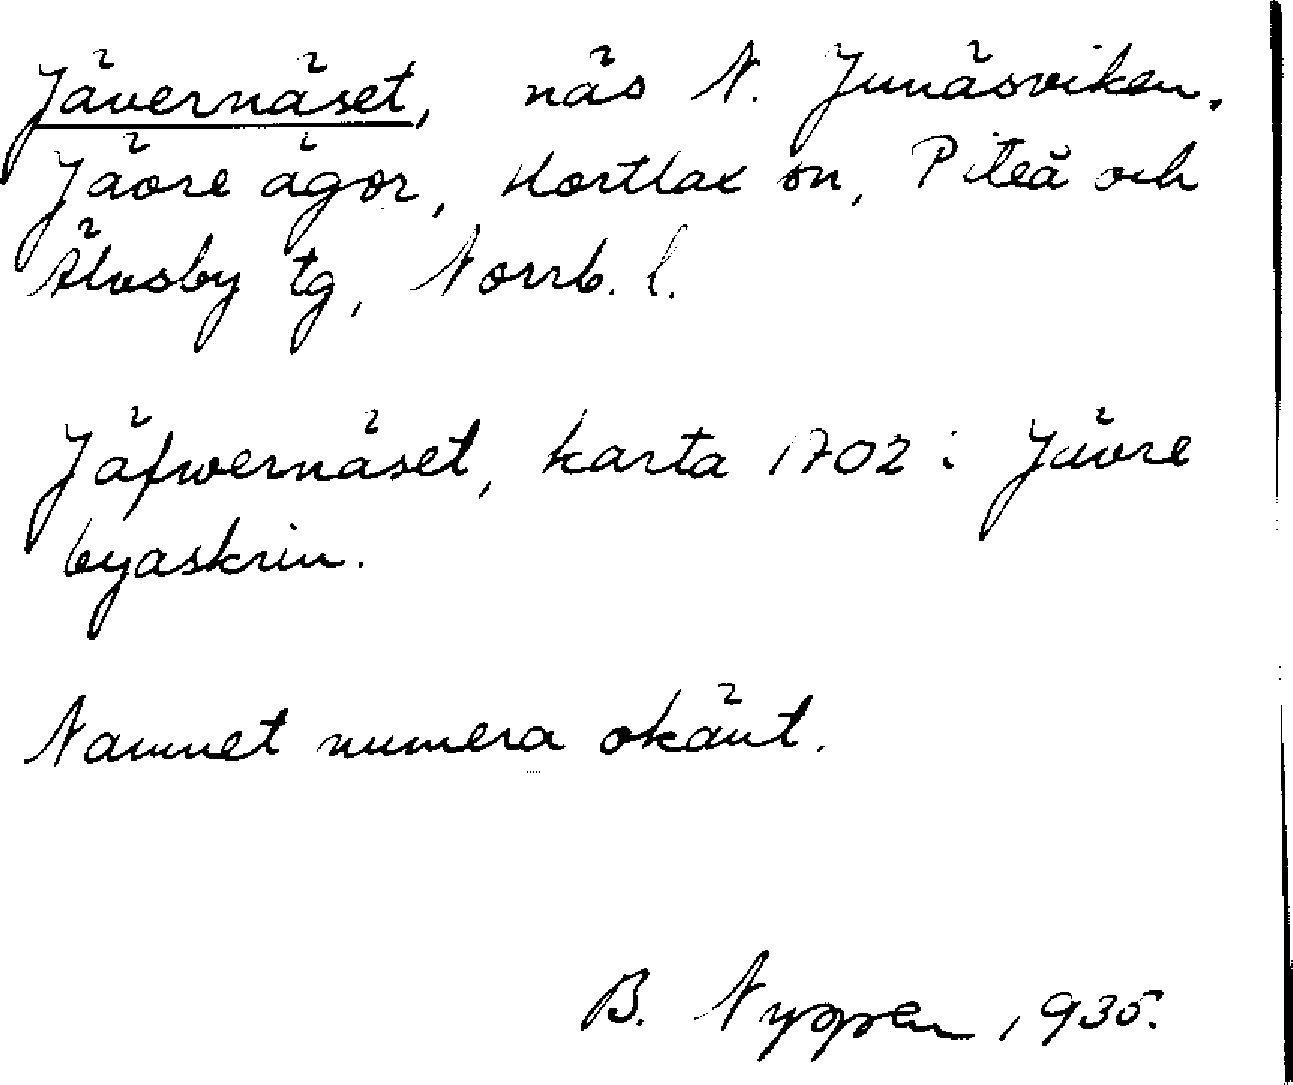 Jävernäset, näs N. Junäsviken,
Jävre ägor, Hortlax sn, Piteå och
Älvsby tg, Norrb. l.
Jäfwernäset, karta 1702 i Jävre
byaskrin.
Namnet numera okänt.
B. Nyppen, 1935.